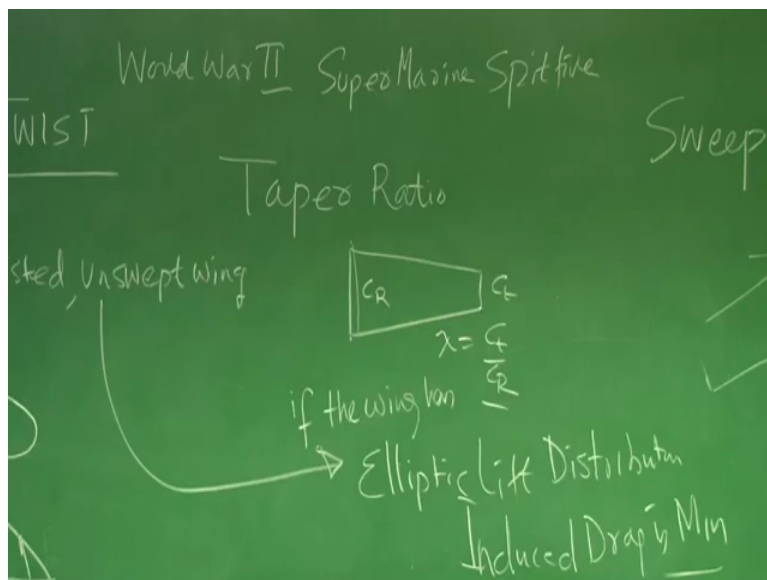 World War II SuperMarine Spitfire
TWIST
Sweep
Taper Ratio
sted, Unswept wing
CR
Ct
λ = Ct
CR
if the wing has
Elliptic Lift Distribution
Induced Drag is Min